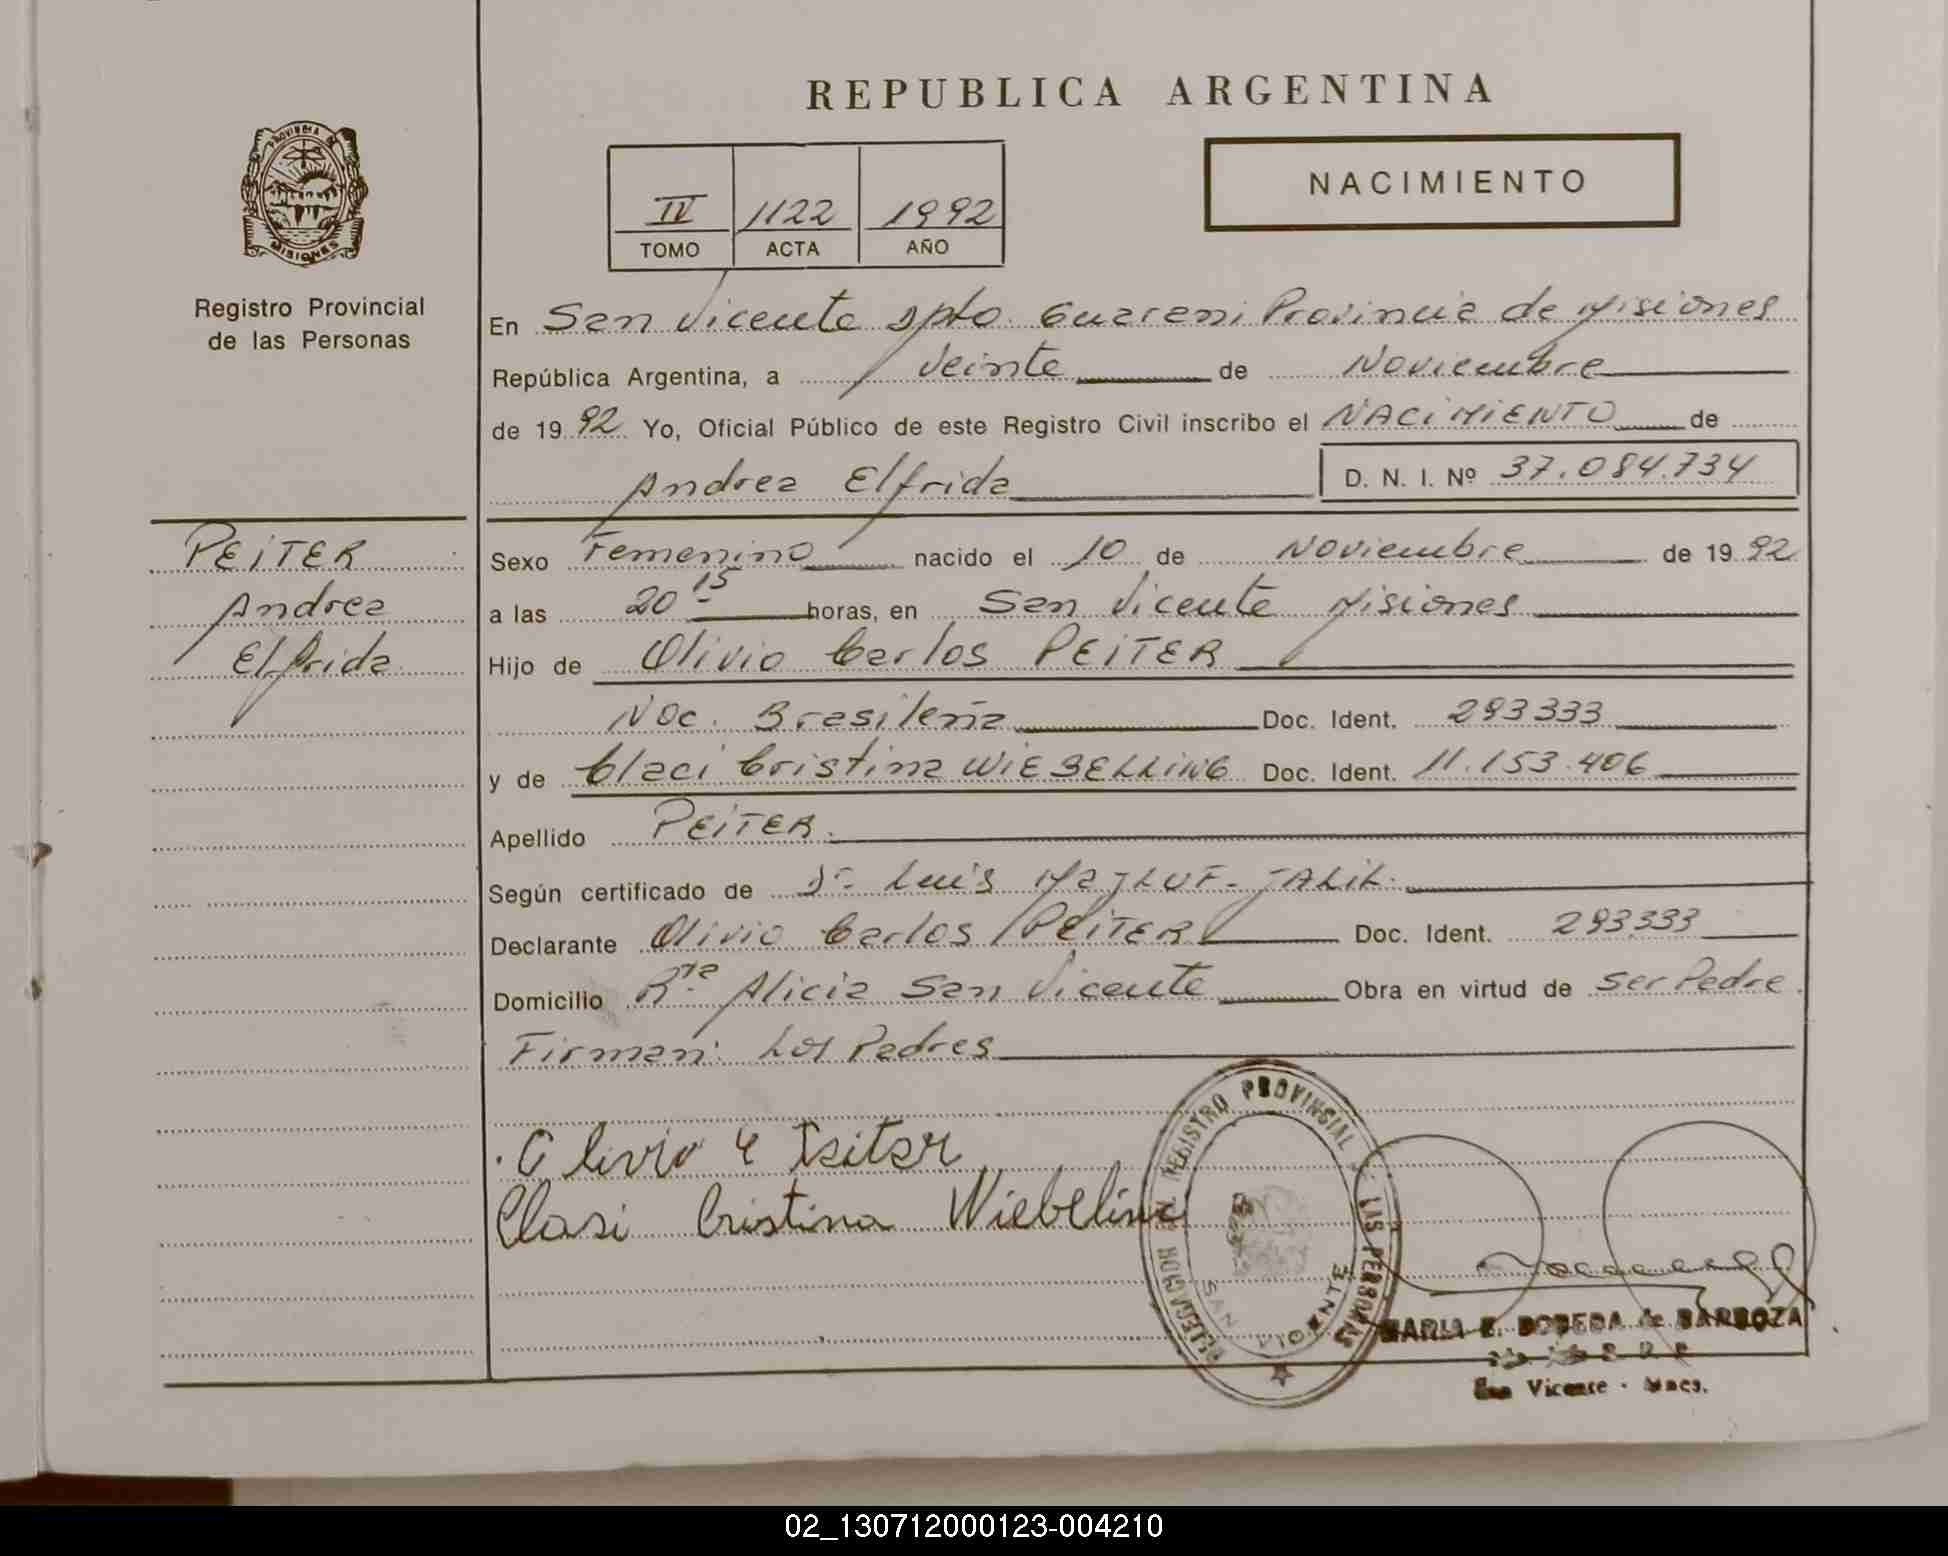 REPUBLICA ARGENTINA
PROVINCIA DE
MISIONES
Registro Provincial
de las Personas
IV 1122 1992
TOMO ACTA AÑO
NACIMIENTO
En San Vicente Dpto. Guarani Provincia de Misiones
República Argentina, a veinte de Noviembre
de 1992 Yo, Oficial Público de este Registro Civil inscribo el NACIMIENTO de
Andrea Elfrida D. N. I. Nº 37.084.734
PEITER
Andrea
Elfrida
Sexo Femenino nacido el 10 de Noviembre de 1992
a las 20 15 horas, en San Vicente Misiones
Hijo de Olivio Carlos PEITER
Nac. Brasileña Doc. Ident. 293333
y de Claci Cristina WIEBELLING Doc. Ident. 11.153.406
Apellido PEITER.
Según certificado de Dr. Luis MAJLUF-JALIL.
Declarante Olivio Carlos PEITER Doc. Ident. 293333
Domicilio Rta Alicia San Vicente Obra en virtud de ser Padre.
Firman: Los Padres
Olivio C Peiter
Clasi Cristina Wiebeling
DELEGACION DEL REGISTRO PROVINCIAL DE LAS PERSONAS
SAN VICENTE
MARIA E. DE BARBOZA
San Vicente - Mnes.
02_130712000123-004210